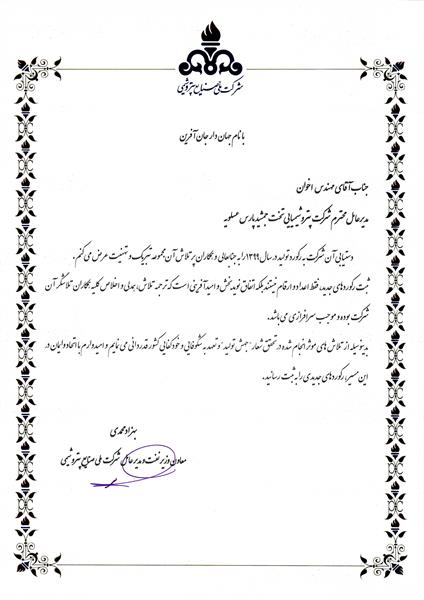 شرکت ملی صنایع پتروشیمی
با نام جهان دار جان آفرین
جناب آقای مهندس اخوان
مدیرعامل محترم شرکت پتروشیمیایی تخت جمشید پارس عسلویه
دستیابی آن شرکت به رکورد تولید در سال ۱۳۹۹ را به جنابعالی و همکاران پر تلاش آن مجموعه تبریک و تهنیت عرض می کنم.
ثبت رکوردهای جدید، فقط اعداد و ارقام نیستند بلکه اتفاق نوید بخش و امید آفرینی است که ترجمه تلاش، همدلی و اخلاص کلیه همکاران تلاشگر آن
شرکت بوده و موجب سرافرازی می باشد.
بدینوسیله از تلاش های موثر انجام شده در تحقق شعار "جهش تولید" و تعهد به شکوفایی و خودکفایی کشور قدردانی می نمایم و امیدوارم با اتحاد و ایمان در
این مسیر، رکوردهای جدیدی را به ثبت رسانید.
بهزاد محمدی
معاون وزیر نفت و مدیرعامل شرکت ملی صنایع پتروشیمی